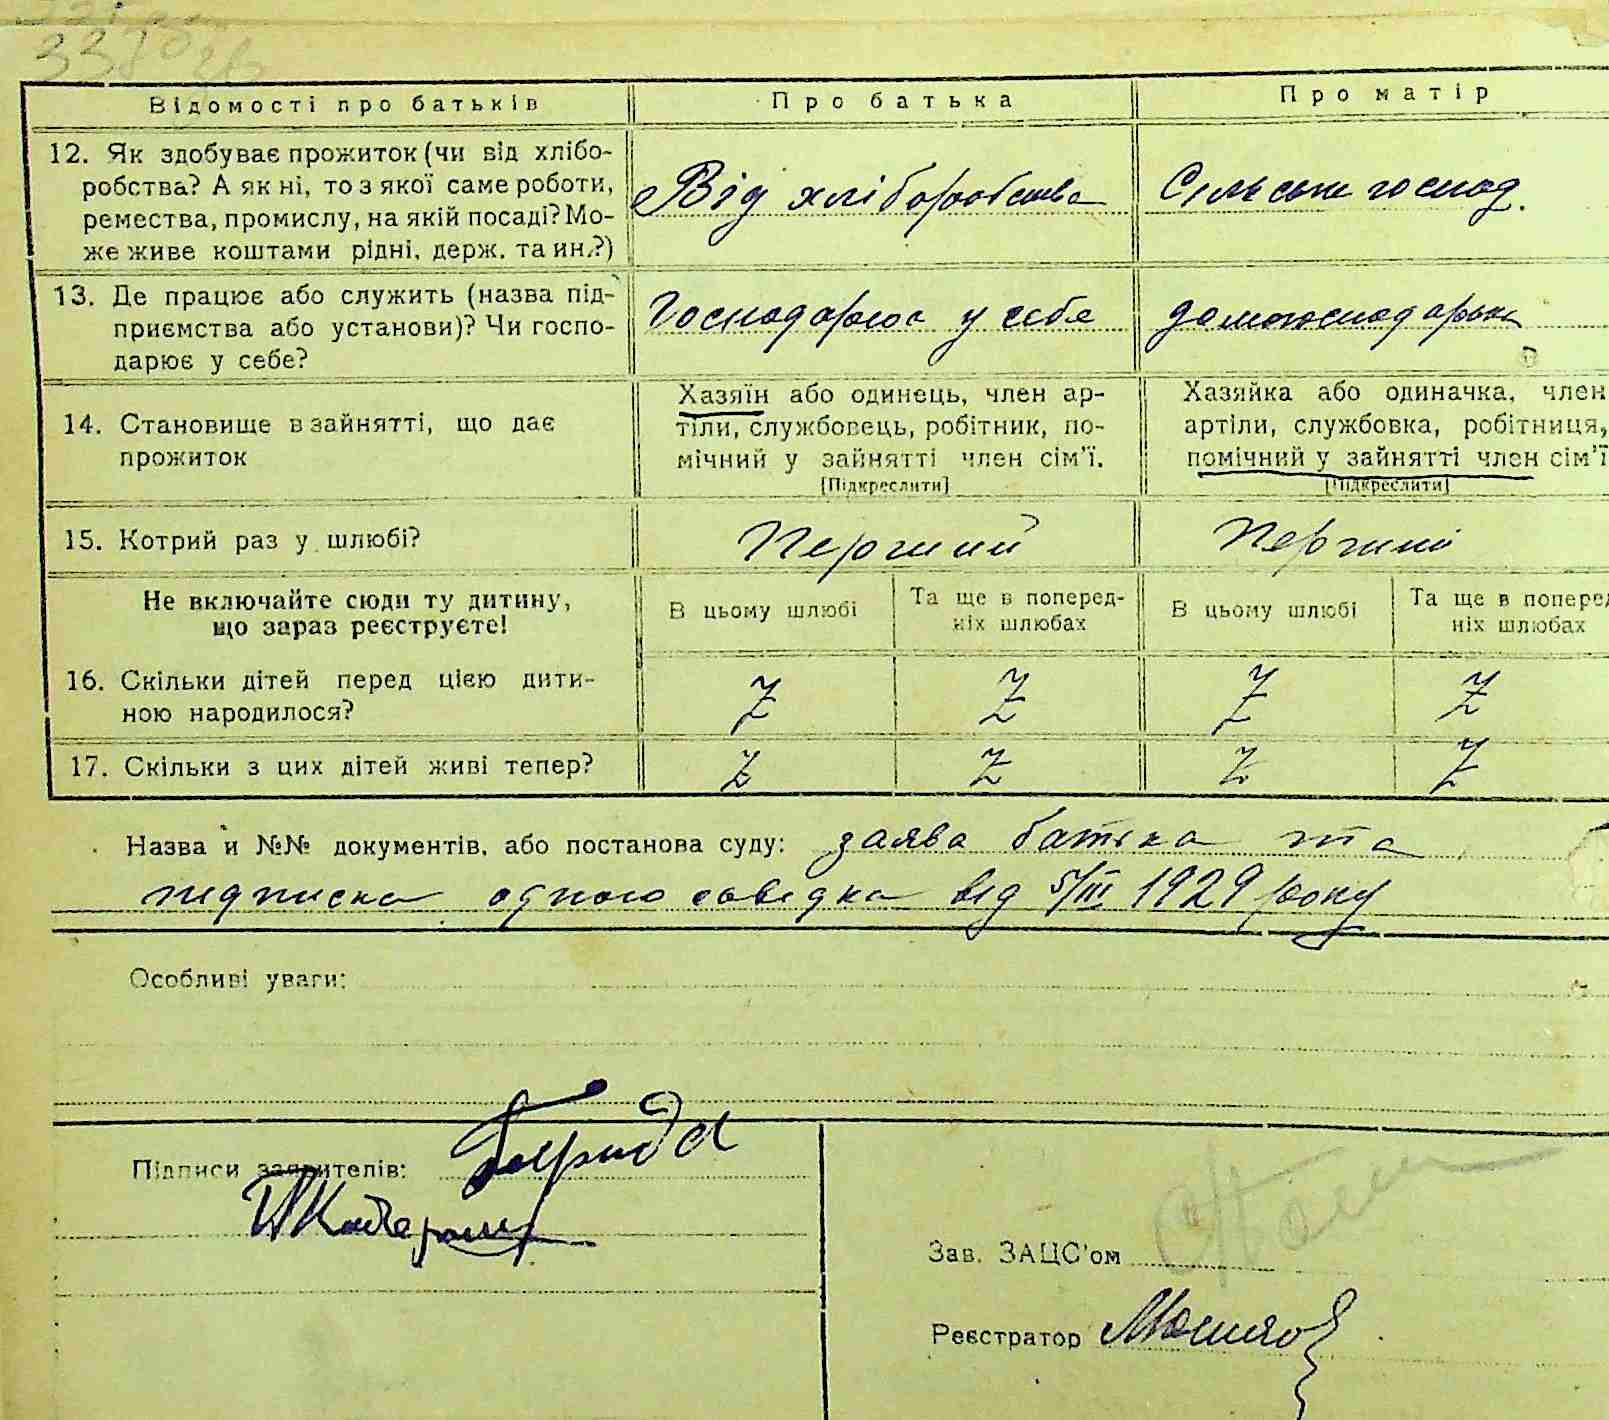 Відомості про батьків
Про батька
Про матір
12. Як здобуває прожиток (чи від хлібо-
робства? А як ні, то з якої саме роботи,
ремества, промислу, на якій посаді? Мо-
же живе коштами рідні, держ. та ин.?)
Від хліборобства
Сільське господ.
13. Де працює або служить (назва під-
приємства або установи)? Чи госпо-
дарює у себе?
Господарює у себе
домогосподарка
14. Становище в зайнятті, що дає
прожиток
Хазяїн або одинець, член ар-
тіли, службовець, робітник, по-
мічний у зайнятті член сім'ї.
[Підкреслити]
Хазяйка або одиначка, член
артіли, службовка, робітниця,
помічний у зайнятті член сім'ї
[Підкреслити]
15. Котрий раз у шлюбі?
Перший
Перший
Не включайте сюди ту дитину,
що зараз реєструєте!
В цьому шлюбі
Та ще в поперед-
ніх шлюбах
В цьому шлюбі
Та ще в поперед
ніх шлюбах
16. Скільки дітей перед цією дити-
ною народилося?
Z Z Z Z
17. Скільки з цих дітей живі тепер?
Z Z Z Z
Назва й №№ документів, або постанова суду: заява батька та
підписка одного свідка від 5/III 1929 року
Особливі уваги:
Підписи заявителів:
Зав. ЗАЦС'ом
Реєстратор